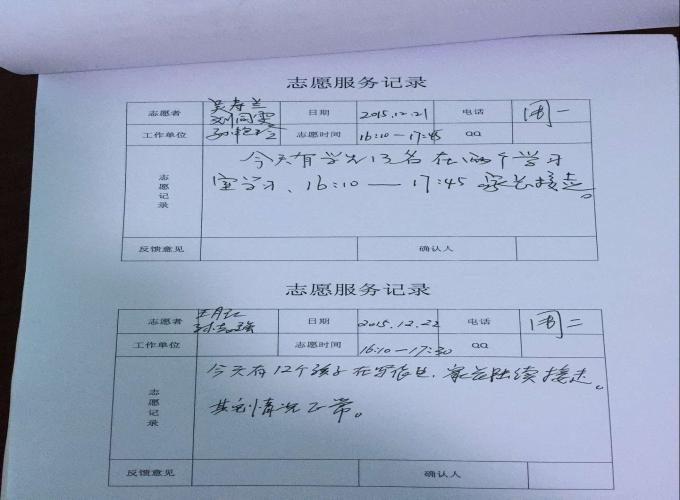 志愿服务记录
吴寿兰
志愿者 刘同雯 日期 2015.12.21 电话 周一
工作单位 孙艳玲 志愿时间 16:10—17:45 QQ
志愿记录
今天有学生13名在两个学习
室学习、16:10—17:45家长接走。
反馈意见 确认人
志愿服务记录
王月红
志愿者 日期 2015.12.22 电话 周二
工作单位 志愿时间 16:10—17:30 QQ
志愿记录
今天有12个孩子在写作业,家长陆续接走。
其他情况正常。
反馈意见 确认人